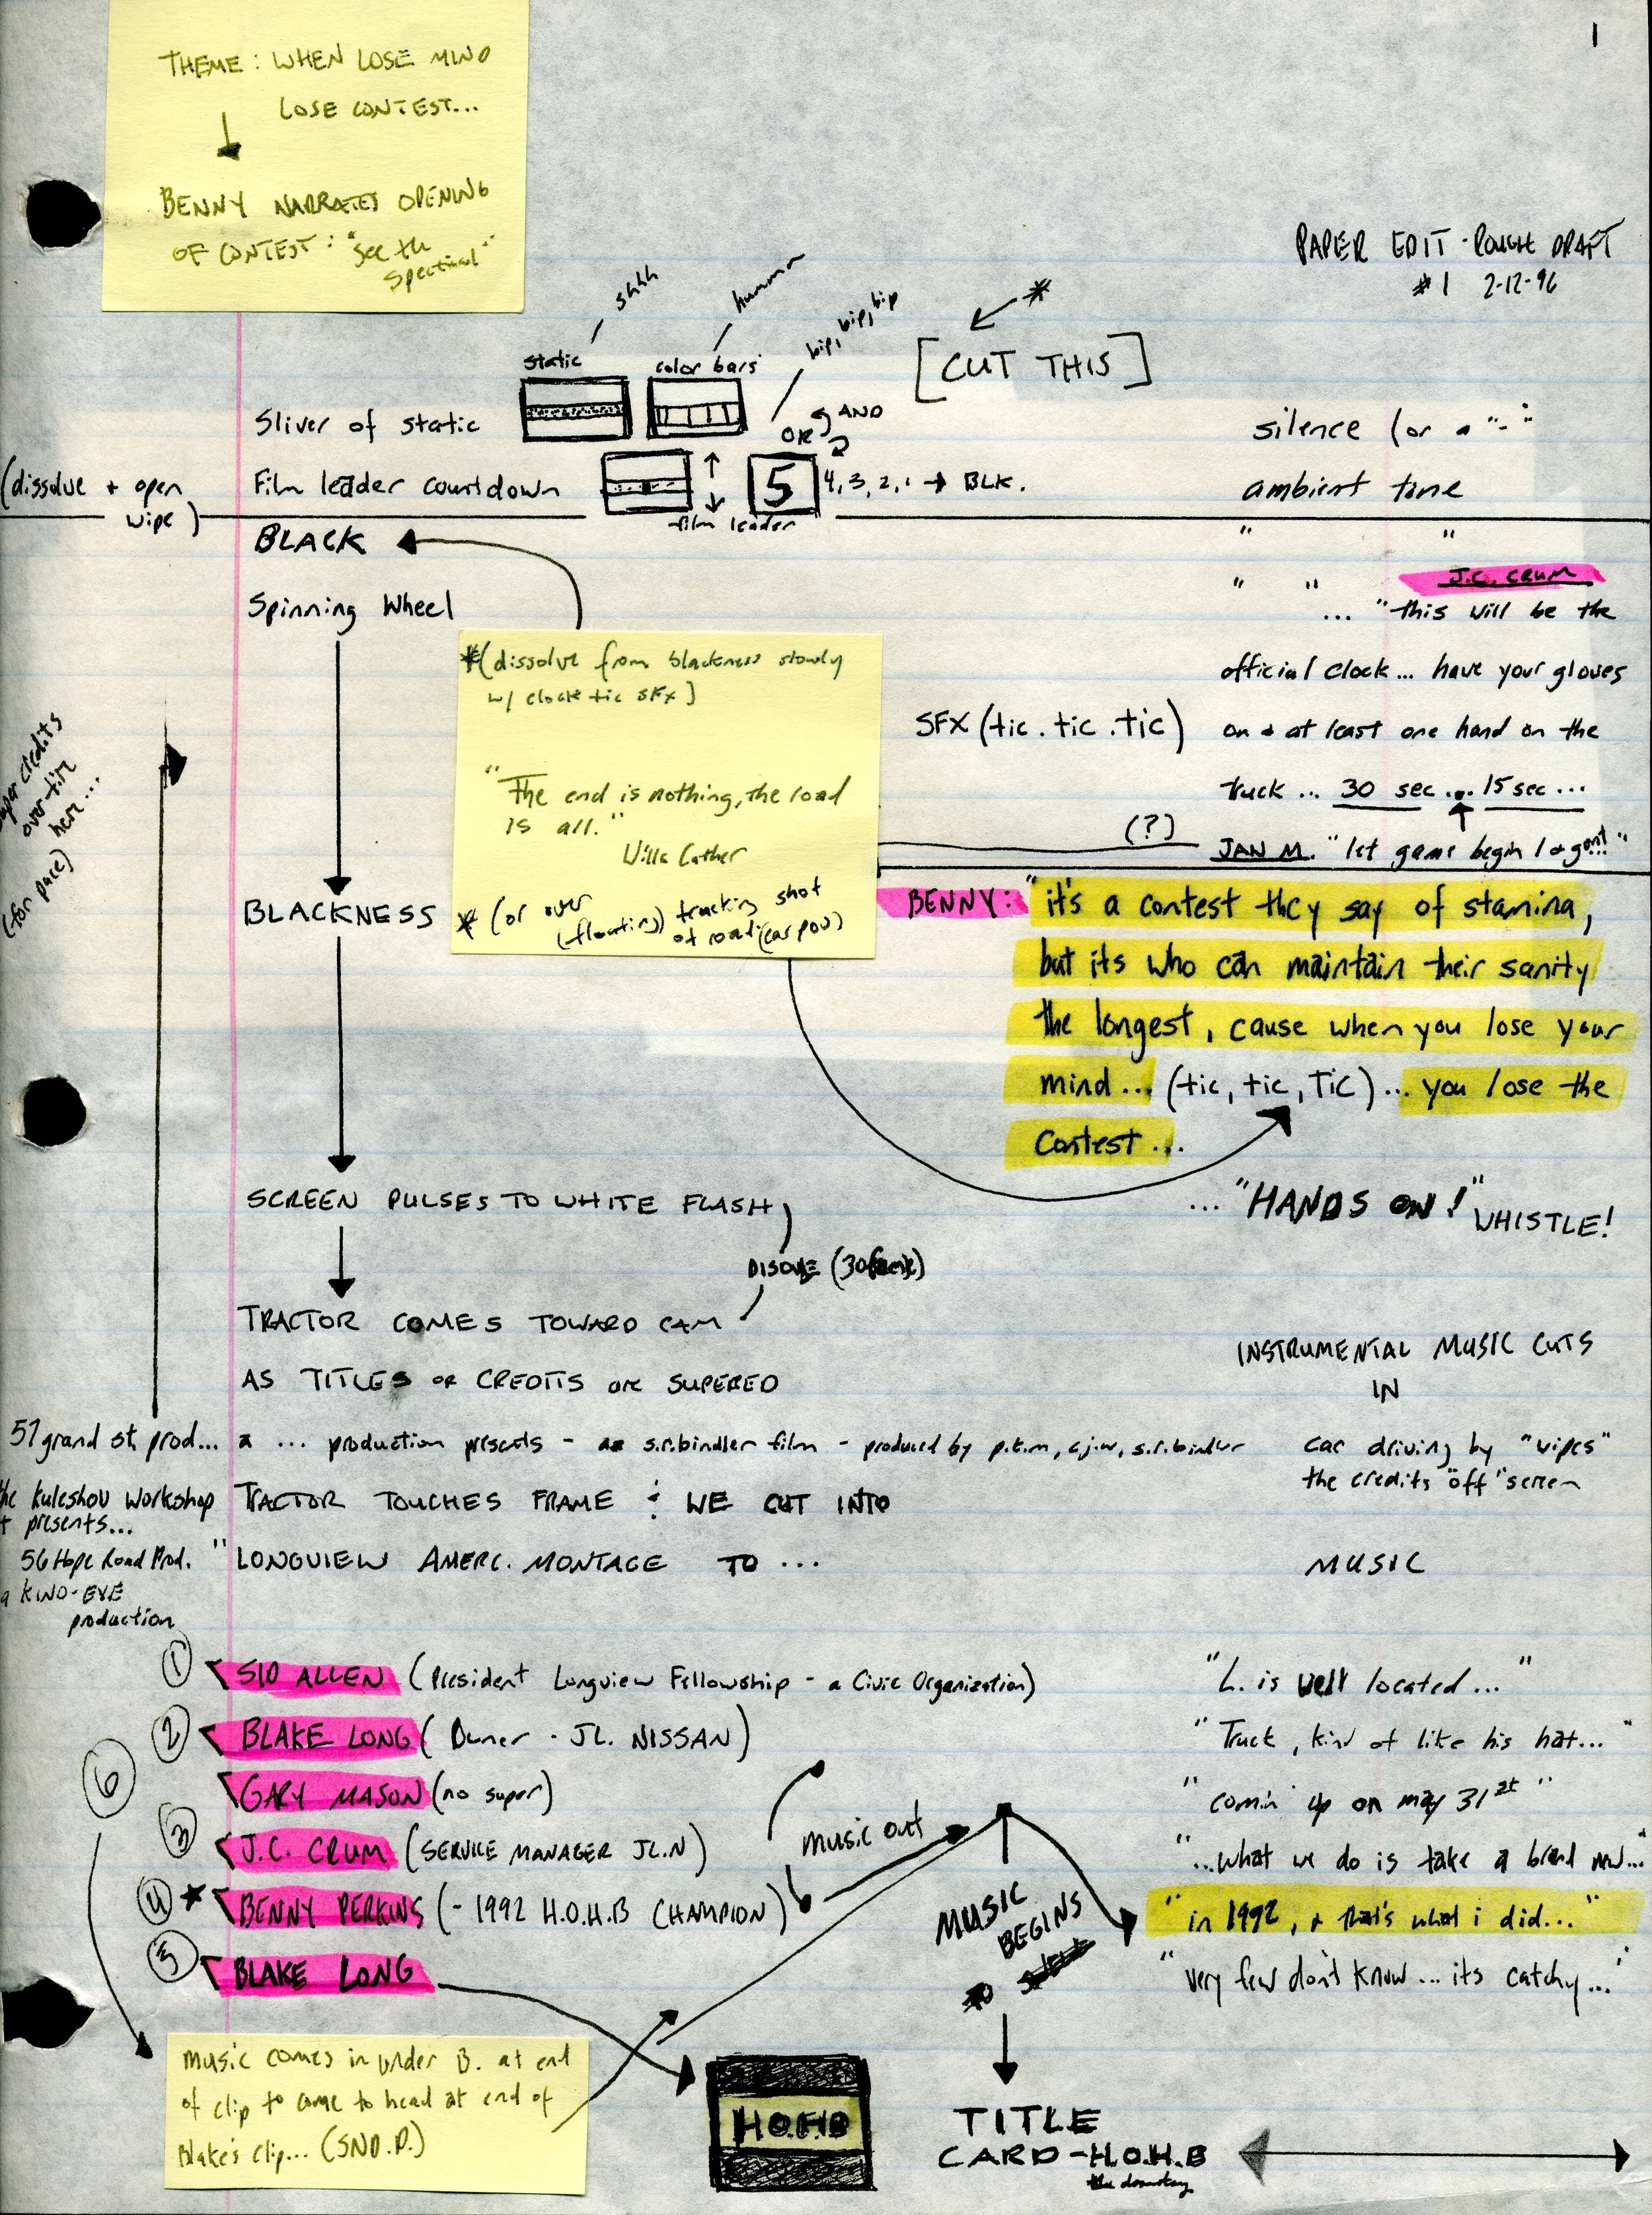 1
THEME: WHEN LOSE MIND
LOSE CONTEST...
BENNY NARRATES OPENING
OF CONTEST: "see the
PAPER EDIT - ROUGH DRAFT
#1 2-12-96
shhh
hummm
bip, bip, bip
*
[CUT THIS]
static
color bars
Sliver of static
AND
OR
silence (or a "-"
(dissolve + open
wipe)
Film leader countdown
5
4, 3, 2, 1 → BLK.
film leader
ambient tone
BLACK
" "
" "
J.C. CRUM
Spinning Wheel
... "this will be the
official clock... have your gloves
SFX (tic . tic . tic)
on + at least one hand on the
truck ... 30 sec ... 15 sec ...
(?)
JAN M. "let game begin
*(dissolve from blackness slowly
w/ clock tic SFX)
"The end is nothing, the road
is all."
Willa Cather
* (or over
(floating) tracking shot
of road (car pov)
super credits
over tire
here...
(for pace)
BLACKNESS
BENNY: "it's a contest they say of stamina,
but its who can maintain their sanity
the longest, cause when you lose your
mind... (tic, tic, TIC) ... you lose the
contest...
SCREEN PULSES TO WHITE FLASH
... "HANDS ON!" WHISTLE!
TRACTOR COMES TOWARD CAM
AS TITLES or CREDITS are SUPERED
INSTRUMENTAL MUSIC CUTS
IN
57 grand st. prod...
a ... production presents - an s.r.bindler film - produced by p.t.m, c.j.w, s.r.bindler
car driving by "wipes"
the credits "off" screen
the Kuleshov Workshop
presents...
TRACTOR TOUCHES FRAME & WE CUT INTO
56 Hope Road Prod.
" LONGVIEW AMERC. MONTAGE TO ...
MUSIC
a KINO-EYE
production
1 SID ALLEN (President Longview Fellowship - a Civic Organization)
"L. is well located..."
2 BLAKE LONG (Owner - JL. NISSAN)
"Truck, kind of like his hat..."
6
GARY MASON (no super)
"comin' up on may 31st"
3 J.C. CRUM (SERVICE MANAGER JL.N)
music out
"...what we do is take a brand new..."
4 ★ BENNY PERKINS (- 1992 H.O.H.B CHAMPION)
MUSIC
BEGINS
"in 1992, + that's what i did..."
5 BLAKE LONG
"very few don't know... its catchy..."
music comes in under B. at end
of clip to come to head at end of
Blake's clip... (SND.D.)
H.O.H.B
TITLE
CARD - H.O.H.B